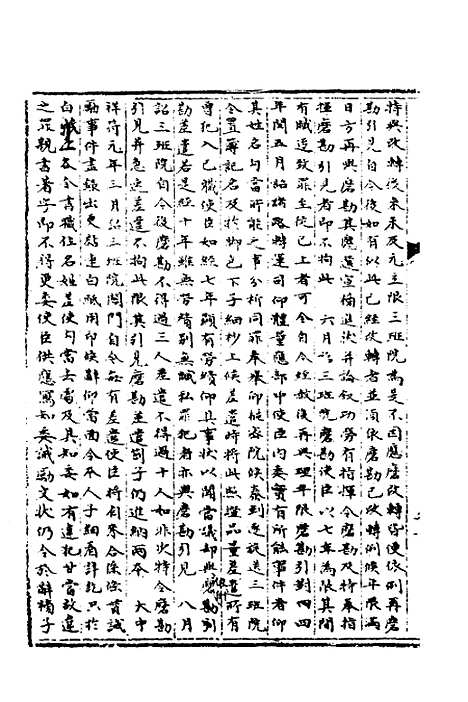 特與改轉後來未及元立限三班院為是不因應磨改轉皆使依例再磨
勘引見自今後如有似此已經改轉者並須依磨勘已改轉例候年限滿
日方再與磨勘其應選宣補進決并論敘功勞有持揮令磨勘及特奉指
揮磨勘引見者即不拘此 六月詔三班院磨勘使臣以七年為限其間
有贓追敘罪至徒已上者可令自今經敘後再與理年限磨勘引對 四
年閏五月詔諸路轉運司仰體量應部中使臣內委實有所能事件者仰
其姓名句當所能之事分析同罪奉舉仰樞密院候奏到送三班院
令置簿記名及於腳色下子細抄上候差遣時將此照證品量差遣所有
曾犯入已贓使臣如經七年顯有勞績仰具事狀以聞當議却與磨勘引
勘差遣若是經十年雖無勞績別無贓私罪犯者亦與磨勘引見 八月
詔三班院自今後磨勘不得過三人差遣不得過十人如非次特令磨勘
引見并急速差遣不拘此限其引見磨勘差遣劄子仍進納兩本 大中
祥符元年三月詔三班院閤門自今每有差遣使臣將劄參合條貫誡
勵事件盡錄出更點連白紙用印候辭仰當面令本人子細看詳訖只於
白紙上各令書職位名姓差使句當去處及具知委如有違犯甘當故違
之罪親書著字即不得更委使臣供應寫知委誡勵文狀仍令於辭牓子